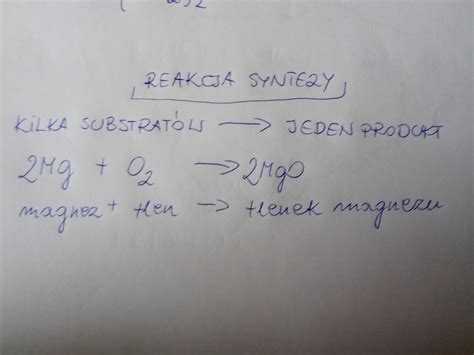 REAKCJA SYNTEZY
KILKA SUBSTRATÓW → JEDEN PRODUKT
2Mg + O₂ → 2MgO
magnez + tlen → tlenek magnezu